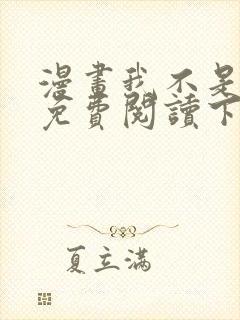 漫畫我不是
免費閱讀下
夏立滿